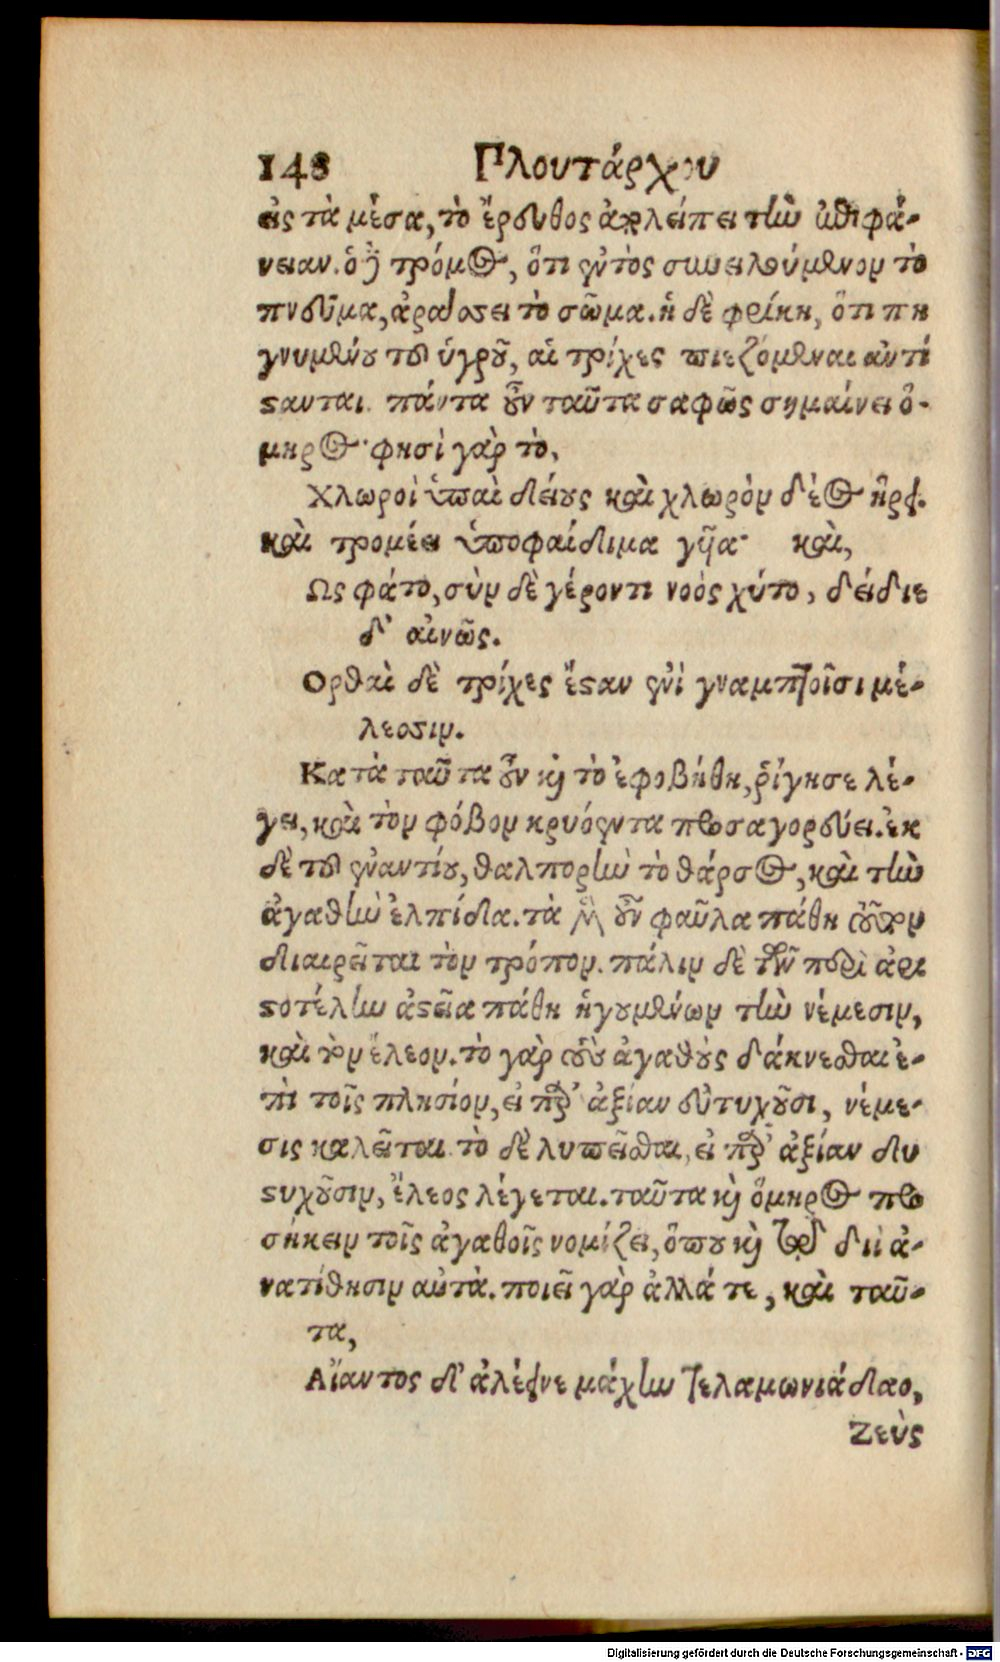 148 Πλουτάρχου
εἰς τὰ μέσα, τὸ ἔρευθος ἀπλείπει τὴν ἐπιφά-
νειαν. ὁ δὲ τρόμος, ὅτι ἐντὸς συνειλούμενον τὸ
πνεῦμα, ἀράσσει τὸ σῶμα. ἡ δὲ φρίκη, ὅτι πη
γνυμένου τοῦ ὑγροῦ, αἱ τρίχες πιεζόμεναι ἀντί
στανται. πάντα οὖν ταῦτα σαφῶς σημαίνει ὅ-
μηρος· φησὶ γὰρ τὸ,
Χλωροὶ ὑπαὶ δείους καὶ χλωρὸν δέος ᾕρει.
καὶ τρομέει ὑποφαίδιμα γῆα· καὶ,
Ως φάτο, σὺν δὲ γέροντι νοὸς χύτο, δείδιε
δ' αἰνῶς.
Ορθαὶ δὲ τρίχες ἔσταν ἐνὶ γναμπτοῖσι μέ-
λεσσιν.
Κατὰ ταῦτα οὖν καὶ τὸ ἐφοβήθη, ῥίγησε λέ-
γει, καὶ τὸν φόβον κρυόεντα προσαγορεύει. ἐκ
δὲ τοῦ ἐναντίου, θαλπορὴν τὸ θάρσος, καὶ τὴν
ἀγαθὴν ἐλπίδα. τὰ μὲν οὖν φαῦλα πάθη τοῦτον
διαιρεῖται τὸν τρόπον. πάλιν δὲ τῶν περὶ ἀρι
στοτέλην ἀστεῖα πάθη ἡγουμένων τὴν νέμεσιν,
καὶ τὸν ἔλεον. τὸ γὰρ τοὺς ἀγαθοὺς δάκνεσθαι ἐ-
πὶ τοῖς πλησίον, εἰ παρ' ἀξίαν εὐτυχοῦσι, νέμε-
σις καλεῖται. τὸ δὲ λυπεῖσθαι, εἰ παρ' ἀξίαν δυ
στυχοῦσιν, ἔλεος λέγεται. ταῦτα καὶ ὅμηρος προ
σήκειν τοῖς ἀγαθοῖς νομίζει, ὅπου καὶ τῷ διὶ ἀ-
νατίθησιν αὐτὰ. ποιεῖ γὰρ ἀλλά τε, καὶ ταῦ-
τα,
Αἴαντος δ' ἀλέεινε μάχην Τελαμωνιάδαο,
Ζεὺς
Digitalisierung gefördert durch die Deutsche Forschungsgemeinschaft - DFG